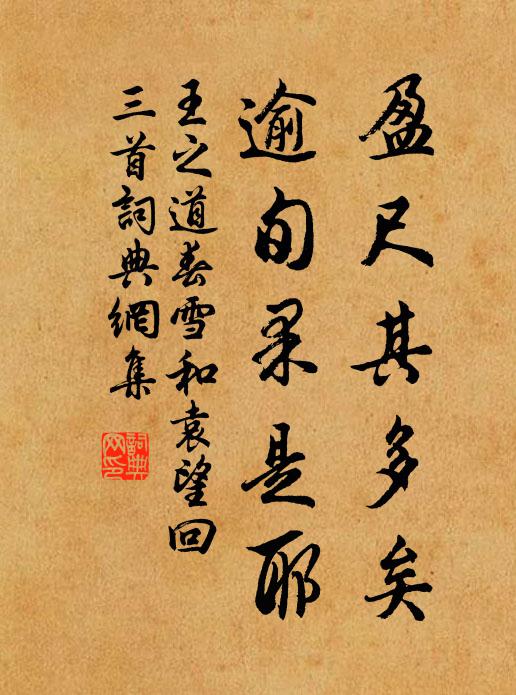 盈尺其多矣
逾旬果是耶
王之道春雪和袁望回
三首詞典網集
詞典
网印